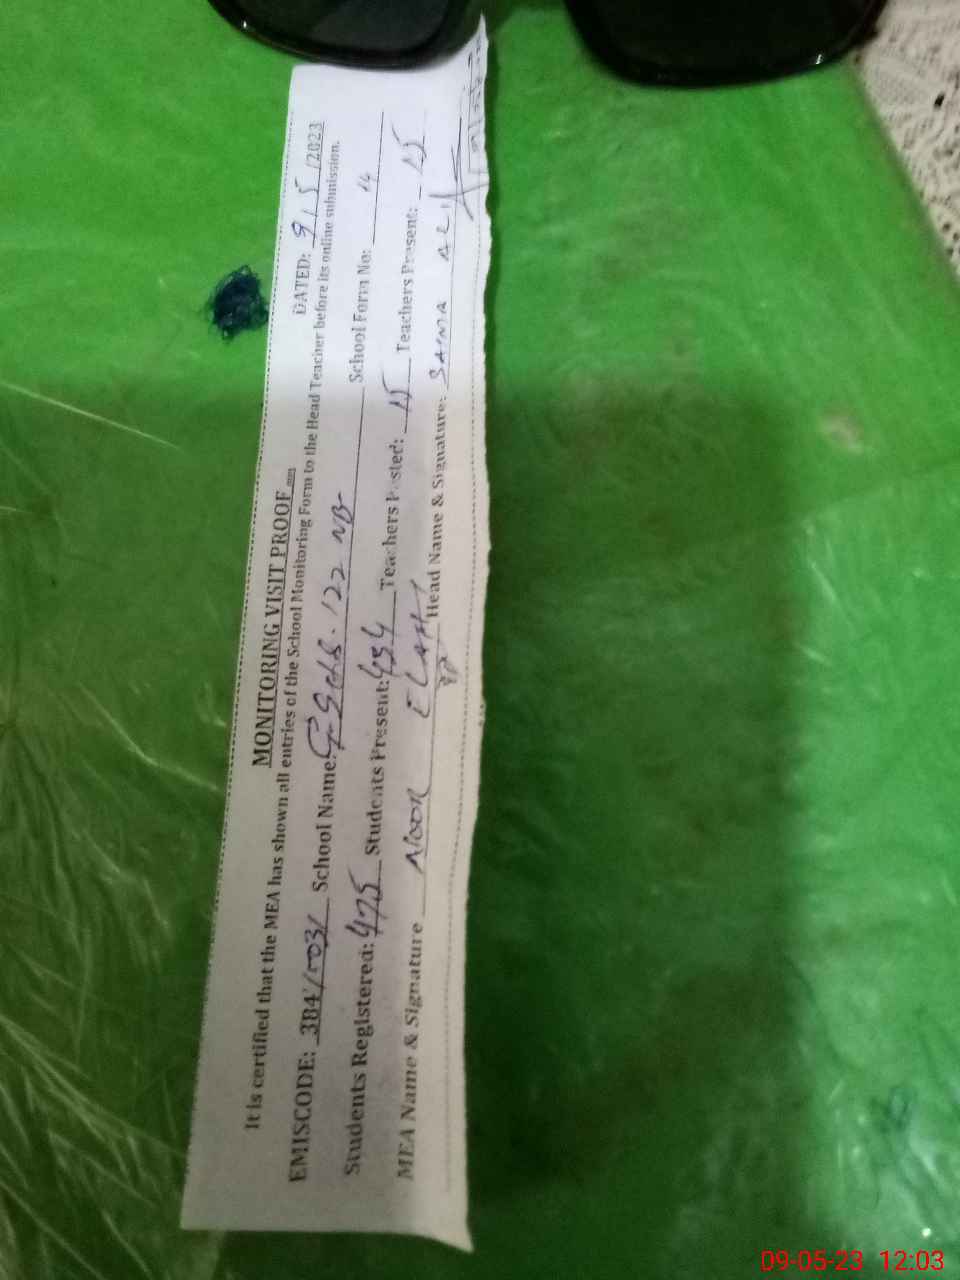 MONITORING VISIT PROOF
DATED: 9/5/2023
It is certified that the MEA has shown all entries of the School Monitoring Form to the Head Teacher before its online submission.
EMISCODE: 384 School Name: 122 NB School Form No:
Students Registered: 475 Students Present: 434 Teachers Posted: 15 Teachers Present: 15
MEA Name & Signature NOOR ELAHI Head Name & Signature: SAIMA ALI
09-05-23 12:03